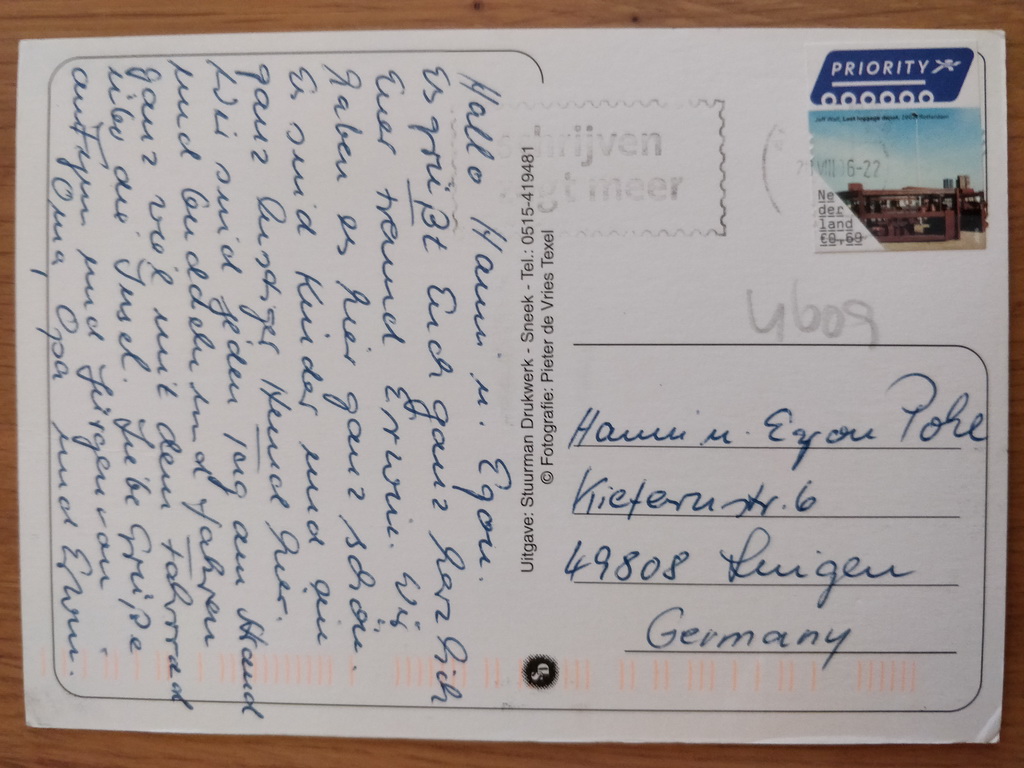 Hallo Hanni u. Egon.
Es grüßt Euch ganz herzlich
Euer Freund Erwin. Wir
haben es hier ganz schön.
Es sind Kinder und ein
ganz lustiger Hund hier.
Wir sind jeden Tag am Strand
und buddeln und fahren
ganz viel mit dem Fahrrad
über die Insel. Liebe Grüße
auch von
Oma Opa und Erwin.
Uitgave: Stuurman Drukwerk - Sneek - Tel.: 0515-419481
© Fotografie: Pieter de Vries Texel
schrijven
zegt meer
PRIORITY
Jeff Wall, Lost luggage depot, Rotterdam
16-22
Ne
der
land
€0,69
Hanni u. Egon
Kiefernstr. 6
49808 Lingen
Germany